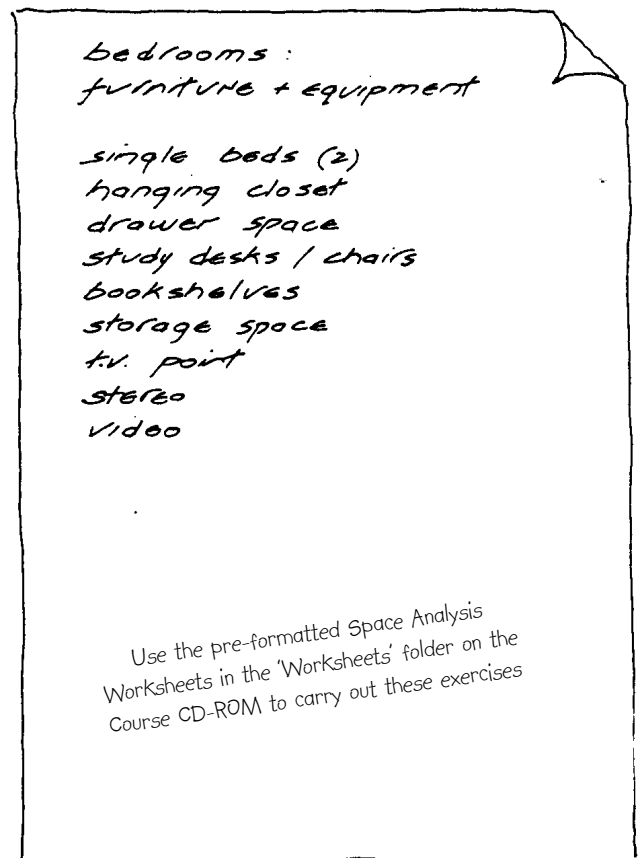 bedrooms :
furniture + equipment
single beds (2)
hanging closet
drawer space
study desks / chairs
bookshelves
storage space
t.v. point
stereo
video
Use the pre-formatted Space Analysis
Worksheets in the 'Worksheets' folder on the
Course CD-ROM to carry out these exercises